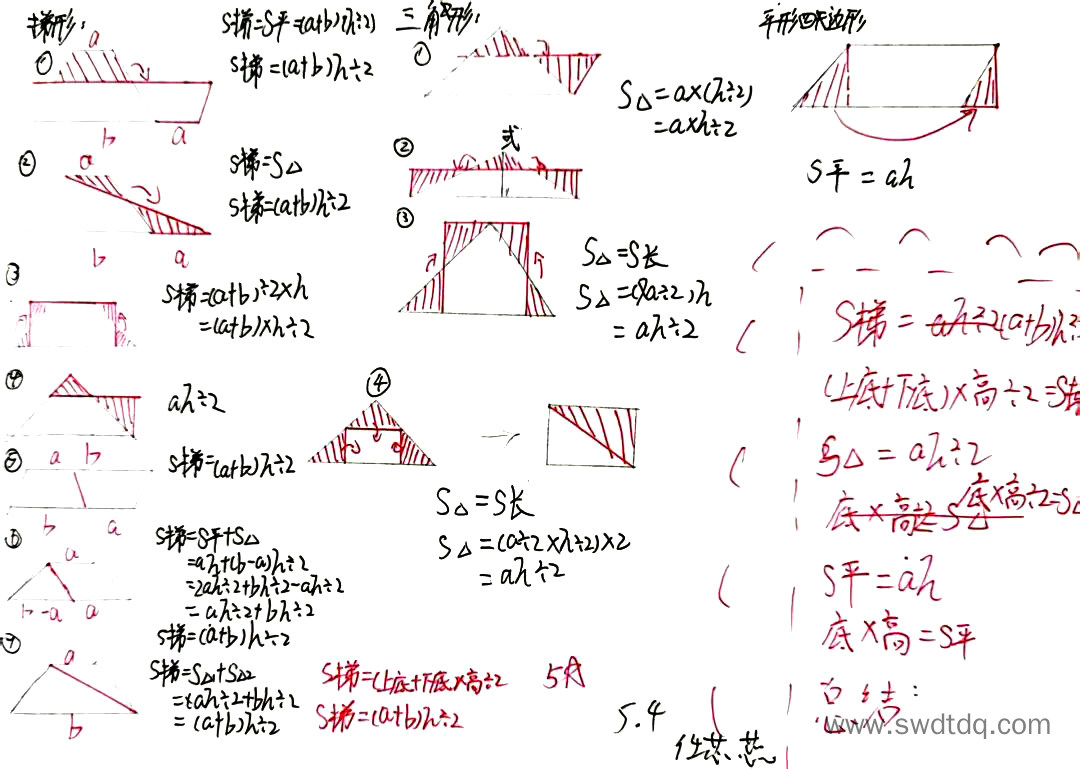 梯形:
①
a
b
a
S梯=S平=(a+b)(h÷2)
S梯=(a+b)h÷2
②
a
b
a
S梯=S△
S梯=(a+b)h÷2
③
S梯=(a+b)÷2×h
=(a+b)×h÷2
④
ah÷2
⑤
a b
b a
S梯=(a+b)h÷2
⑥
a
b-a a
S梯=S平+S△
=ah+(b-a)h÷2
=2ah÷2+bh÷2-ah÷2
=ah÷2+bh÷2
S梯=(a+b)h÷2
⑦
a
b
S梯=S△1+S△2
=ah÷2+bh÷2
=(a+b)h÷2
S梯=(上底+下底)×高÷2
S梯=(a+b)h÷2
三角形:
①
S△=a×(h÷2)
=a×h÷2
或
②
③
S△=S长
S△=(a÷2)h
=ah÷2
④
S△=S长
S△=(a÷2×h÷2)×2
=ah÷2
平行四边形
S平=ah
S梯=ah÷2(a+b)h÷2
(上底+下底)×高÷2=S梯
S△=ah÷2
底×高÷2=S△
底×高÷2=S△
S平=ah
底×高=S平
总结:
5.4
www.swdtdq.com